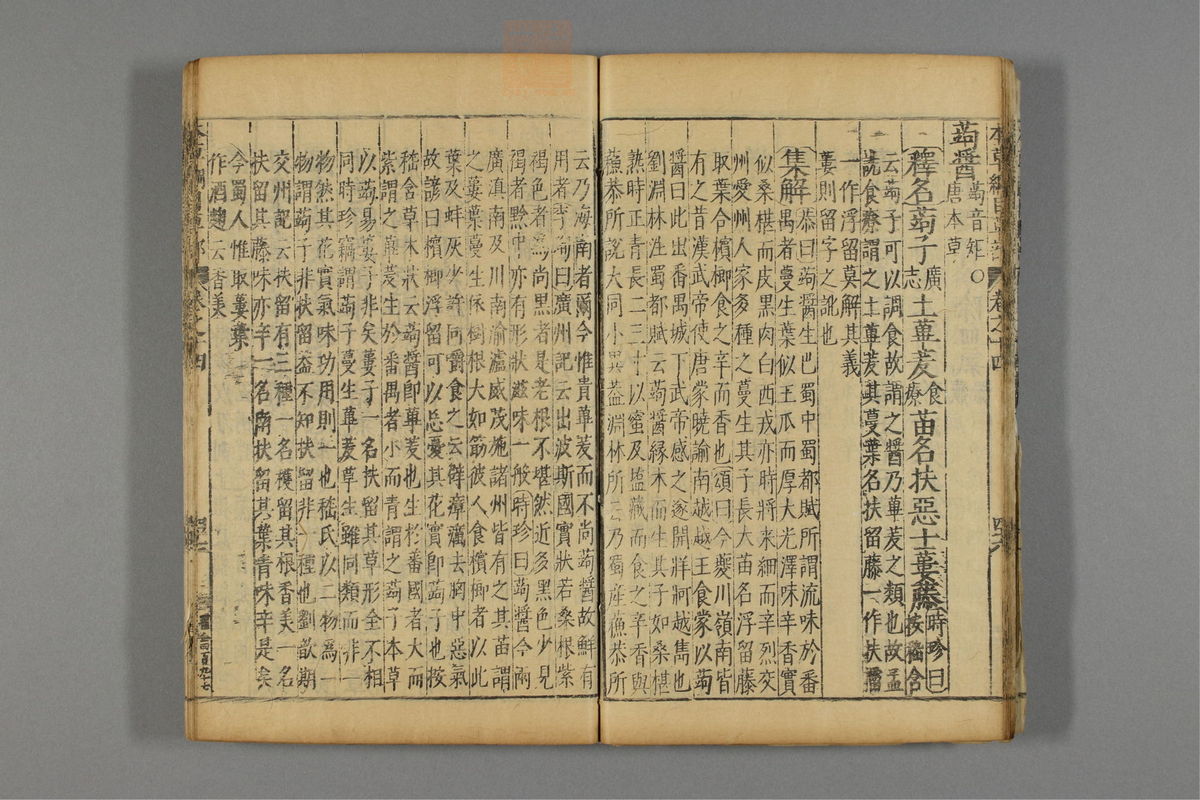 蒟醬蒟音矩○唐本草
釋名蒟子廣志土蓽茇食療苗名扶惡士蔞藤時珍曰按嵇含
云蒟子可以調食故謂之醬乃蓽茇之類也故孟
詵食療謂之土蓽茇其蔓葉名扶留藤一作扶䅀
一作浮留莫解其義
蔞則留字之訛也
集解恭曰蒟醬生巴蜀中蜀都賦所謂流味於番
禺者蔓生葉似王瓜而厚大光澤味辛香實
似桑椹而皮黑肉白西戎亦時將來細而辛烈交
州愛州人家多種之蔓生其子長大苗名浮留藤
取葉合檳榔食之辛而香也頌曰今夔川嶺南皆
有之昔漢武帝使唐蒙曉諭南越越王食蒙以蒟
醬曰此出番禺城下武帝感之遂開牂牁越雋也
劉淵林注蜀都賦云蒟醬緣木而生其子如桑椹
熟時正青長二三寸以蜜及鹽藏而食之辛香與
蘇恭所說大同小異蓋淵林所云乃蜀産蘇恭所
云乃海南者爾今惟貴蓽茇而不尚蒟醬故鮮有
用者李珣曰廣州記云出波斯國實狀若桑椹紫
褐色者爲尚黑者是老根不堪然近多黑色少見
褐者黔中亦有形狀滋味一般時珍曰蒟醬今兩
廣滇南及川南渝瀘威茂施諸州皆有之其苗謂
之蔞葉蔓生依樹根大如筯彼人食檳榔者以此
葉及蚌灰少許同嚼食之云辟瘴癘去胸中惡氣
故諺曰檳榔浮留可以忘憂其花實卽蒟子也按
嵇含草木狀云蒟醬卽蓽茇也生於番國者大而
紫謂之蓽茇生於番禺者小而青謂之蒟子本草
以蒟易蔞子非矣蔞子一名扶留其草形全不相
同時珍竊謂蒟子蔓生蓽茇草生雖同類而非一
物然其花實氣味功用則一也嵇氏以二物爲一
物謂蒟子非扶留蓋不知扶留非一種也劉歆期
交州記云扶留有三種一名穫留其根香美一名
扶留其藤味亦辛一名南扶留其葉青味辛是矣
今蜀人惟取蔞葉
作酒麴云香美